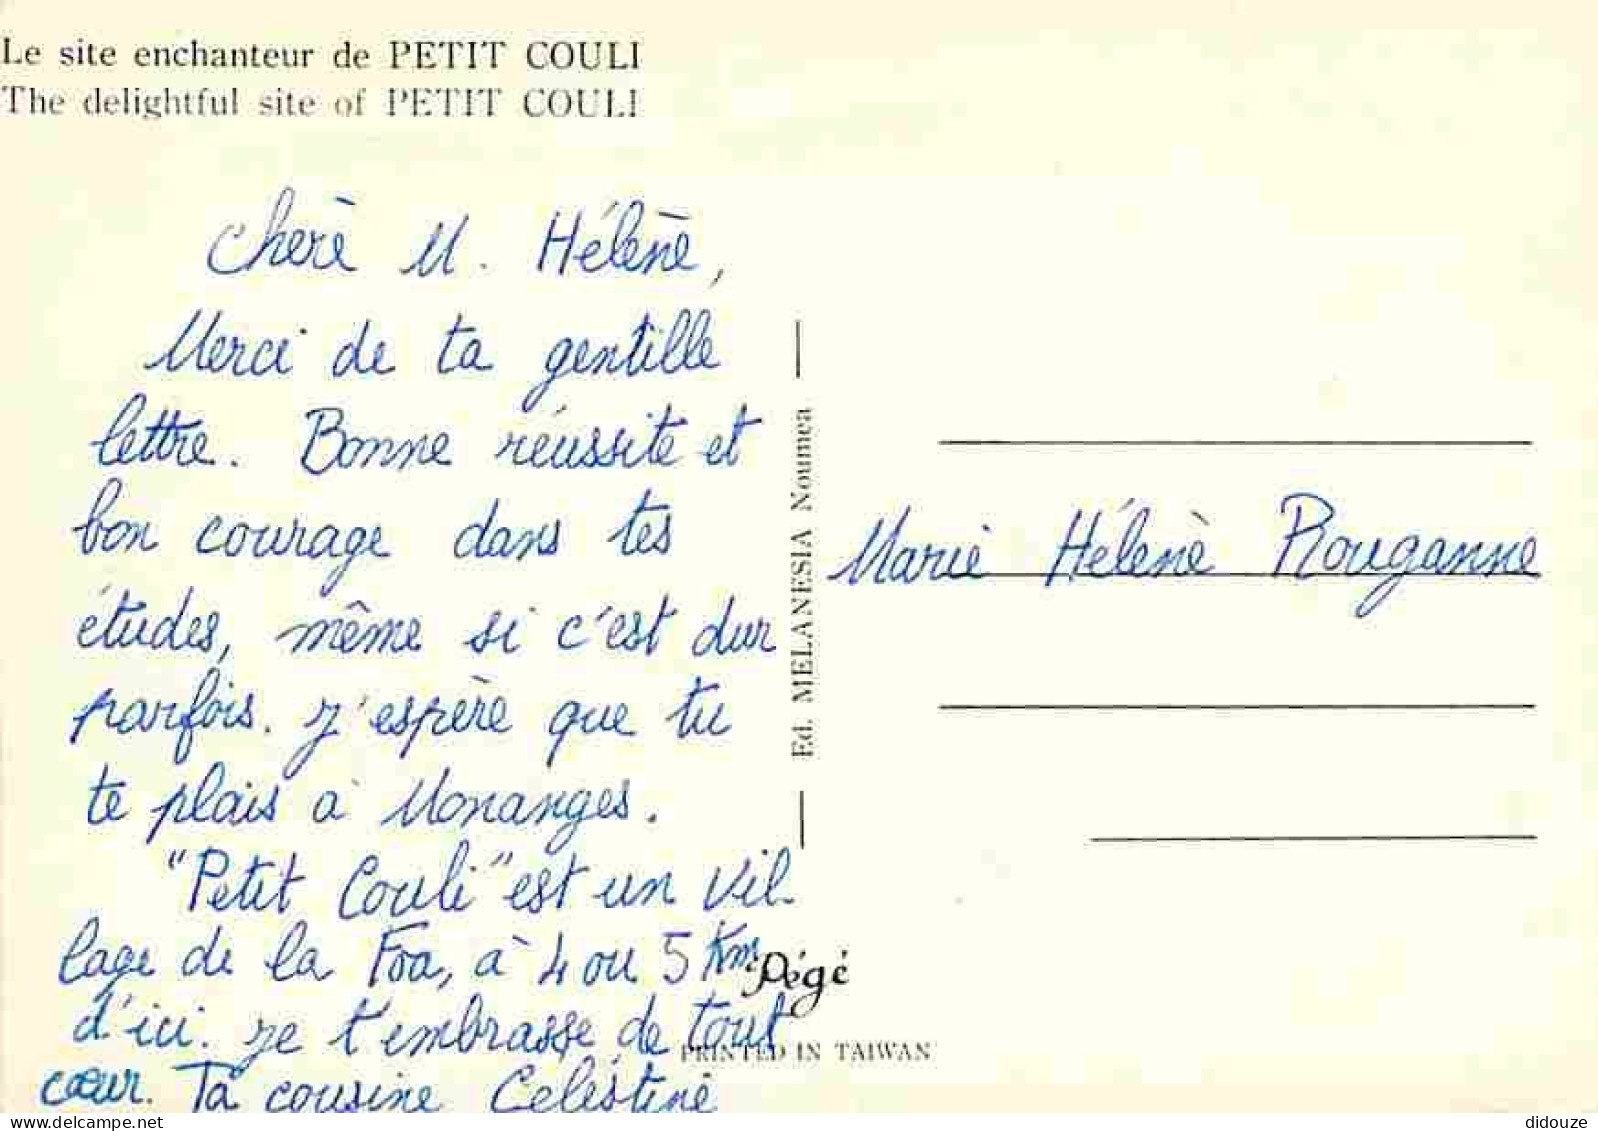 Le site enchanteur de PETIT COULI
The delightful site of PETIT COULI
Chère M. Hélène,
Merci de ta gentille
lettre. Bonne réussite et
bon courage dans tes
études, même si c'est dur
parfois. J'espère que tu
te plais à Monanges.
"Petit Couli" est un vil-
lage de la Foa, à 4 ou 5 Km
d'ici. Je t'embrasse de tout
cœur. Ta cousine Célestine
Ed. MELANESIA Noumea
Marie Hélène Rouganne
Pégé
PRINTED IN TAIWAN
didouze